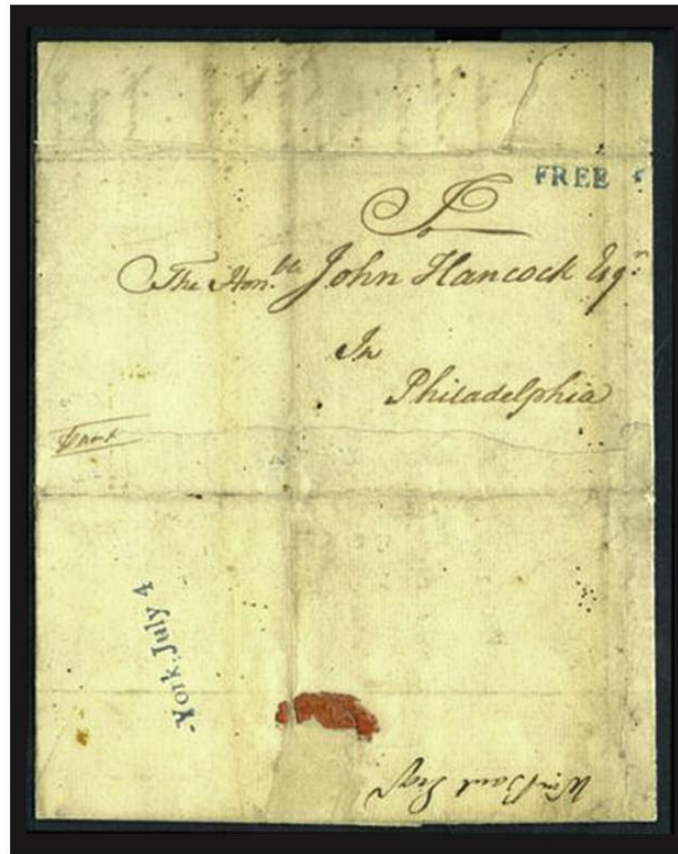 FREE
To
The Hon.ble John Hancock Esqr.
In
Philadelphia
York, July 4
Wm Esqr